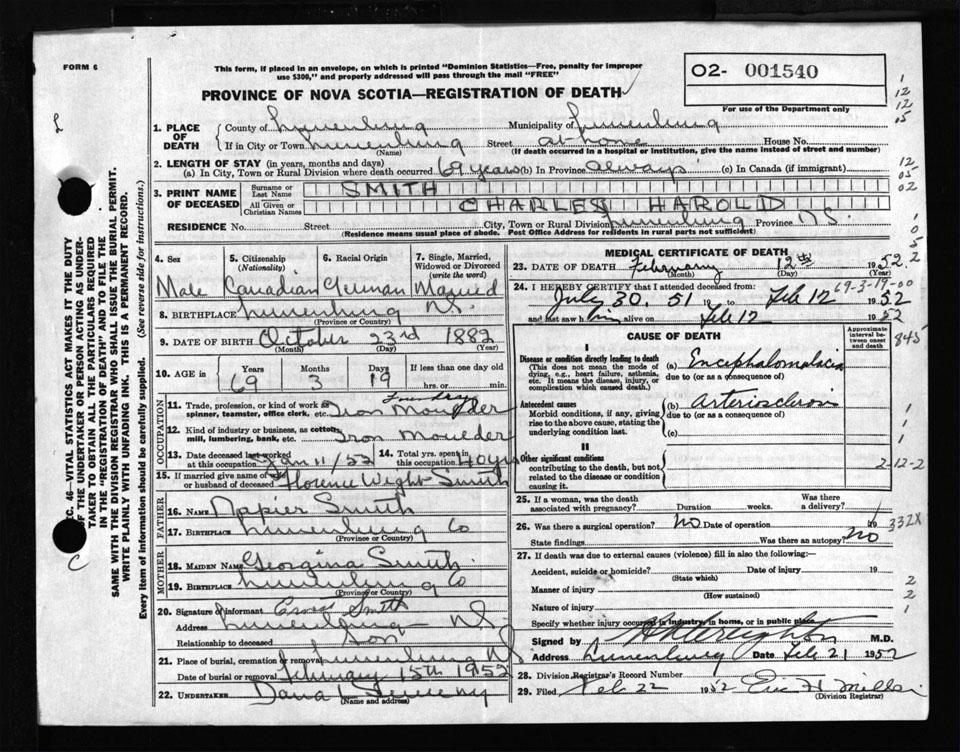 FORM 6
This form, if placed in an envelope, on which is printed "Dominion Statistics—Free, penalty for improper
use $300," and properly addressed will pass through the mail "FREE"
PROVINCE OF NOVA SCOTIA—REGISTRATION OF DEATH
02- 001540
For use of the Department only
1. PLACE OF DEATH
County of Lunenburg Municipality of Lunenburg
If in City or Town Lunenburg Street at home House No.
(Name) (If death occurred in a hospital or institution, give the name instead of street and number)
2. LENGTH OF STAY (in years, months and days)
(a) In City, Town or Rural Division where death occurred 69 years (b) In Province always (c) In Canada (if immigrant)
3. PRINT NAME OF DECEASED
Surname or Last Name SMITH
All Given or Christian Names CHARLES HAROLD
RESIDENCE No. Street City, Town or Rural Division Lunenburg Province N.S.
(Residence means usual place of abode. Post Office Address for residents in rural parts not sufficient)
4. Sex
Male
5. Citizenship (Nationality)
Canadian
6. Racial Origin
German
7. Single, Married, Widowed or Divorced (write the word)
Married
8. BIRTHPLACE Lunenburg NS.
(Province or Country)
9. DATE OF BIRTH October 23rd 1882
(Month) (Day) (Year)
10. AGE in Years Months Days If less than one day old
69 3 19 hrs. or min.
OCCUPATION
11. Trade, profession or kind of work as spinner, teamster, office clerk, etc. Iron Moulder
Foundry
12. Kind of industry or business, as cotton mill, lumbering, bank, etc. Iron Moulder
13. Date deceased last worked at this occupation Jan 11/52
14. Total yrs. spent in this occupation 40 yrs
15. If married give name of wife or husband of deceased Florence Wight Smith
FATHER
16. NAME Napier Smith
17. BIRTHPLACE Lunenburg Co
(Province or Country)
MOTHER
18. MAIDEN NAME Georgina Smith
19. BIRTHPLACE Lunenburg Co
(Province or Country)
20. Signature of informant Smith
Address Lunenburg NS
Relationship to deceased Son
21. Place of burial, cremation or removal Lunenburg NS
Date of burial or removal February 15th 1952
22. UNDERTAKER Dana L Sweeny
(Name and address)
MEDICAL CERTIFICATE OF DEATH
23. DATE OF DEATH February 12th 1952
(Month) (Day) (Year)
24. I HEREBY CERTIFY that I attended deceased from:
69-3-19-00
July 30. 51 19 to Feb 12 1952
and last saw him alive on Feb 12 1952
CAUSE OF DEATH
Approximate interval between onset and death
845
I
Disease or condition directly leading to death
(This does not mean the mode of dying, e.g., heart failure, asthenia, etc. It means the disease, injury, or complication which caused death.)
(a) Encephalomalacia
due to (or as a consequence of)
Antecedent causes
Morbid conditions, if any, giving rise to the above cause, stating the underlying condition last.
(b) Arteriosclerosis
due to (or as a consequence of)
(c)
II
Other significant conditions
contributing to the death, but not related to the disease or condition causing it.
2-12-2
25. If a woman, was the death associated with pregnancy? Duration weeks. Was there a delivery?
26. Was there a surgical operation? No Date of operation 19
332X
State findings Was there an autopsy? No
27. If death was due to external causes (violence) fill in also the following:—
Accident, suicide or homicide? Date of injury 19
(State which)
Manner of injury
(How sustained)
Nature of injury
Specify whether injury occurred in industry, in home, or in public place
Signed by M.D.
Address Lunenburg Date Feb 21 1952
28. Division Registrar's Record Number
29. Filed Feb 22 1952 Eric H. Miller
(Division Registrar)
SEC. 46—VITAL STATISTICS ACT MAKES IT THE DUTY
OF THE UNDERTAKER OR PERSON ACTING AS UNDER-
TAKER TO OBTAIN ALL THE PARTICULARS REQUIRED
IN THE "REGISTRATION OF DEATH" AND TO FILE THE
SAME WITH THE DIVISION REGISTRAR WHO SHALL ISSUE THE BURIAL PERMIT.
WRITE PLAINLY WITH UNFADING INK. THIS IS A PERMANENT RECORD.
Every item of information should be carefully supplied. (See reverse side for instructions.)